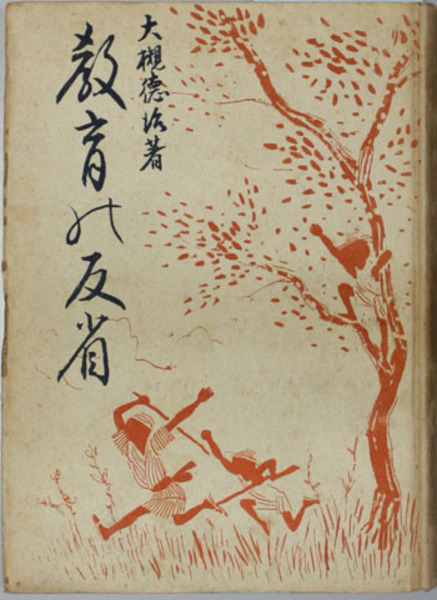 大槻徳治著
教育の反省